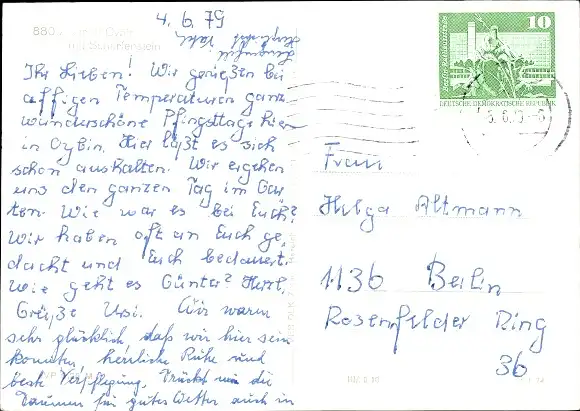 4. 6. 79
10
DEUTSCHE DEMOKRATISCHE REPUBLIK
Ihr Lieben! Wir genießen bei
affigen Temperaturen ganz
wunderschöne Pfingsttage hier
in Oybin. Hier läßt es sich
schon aushalten. Wir ergehen
uns den ganzen Tag im Gar
ten. Wie war es bei Euch?
Wir haben oft an Euch ge,
dacht und Euch bedauert.
Wie geht es Günter? Herzl.
Grüße Usi. Wir waren
sehr glücklich, daß wir hier sein
konnten, herrliche Ruhe und
beste Verpflegung. Drückt uns die
Daumen für gutes Wetter auch in
Frau
Helga Altmann
1136 Berlin
Rosenfelder Ring
36